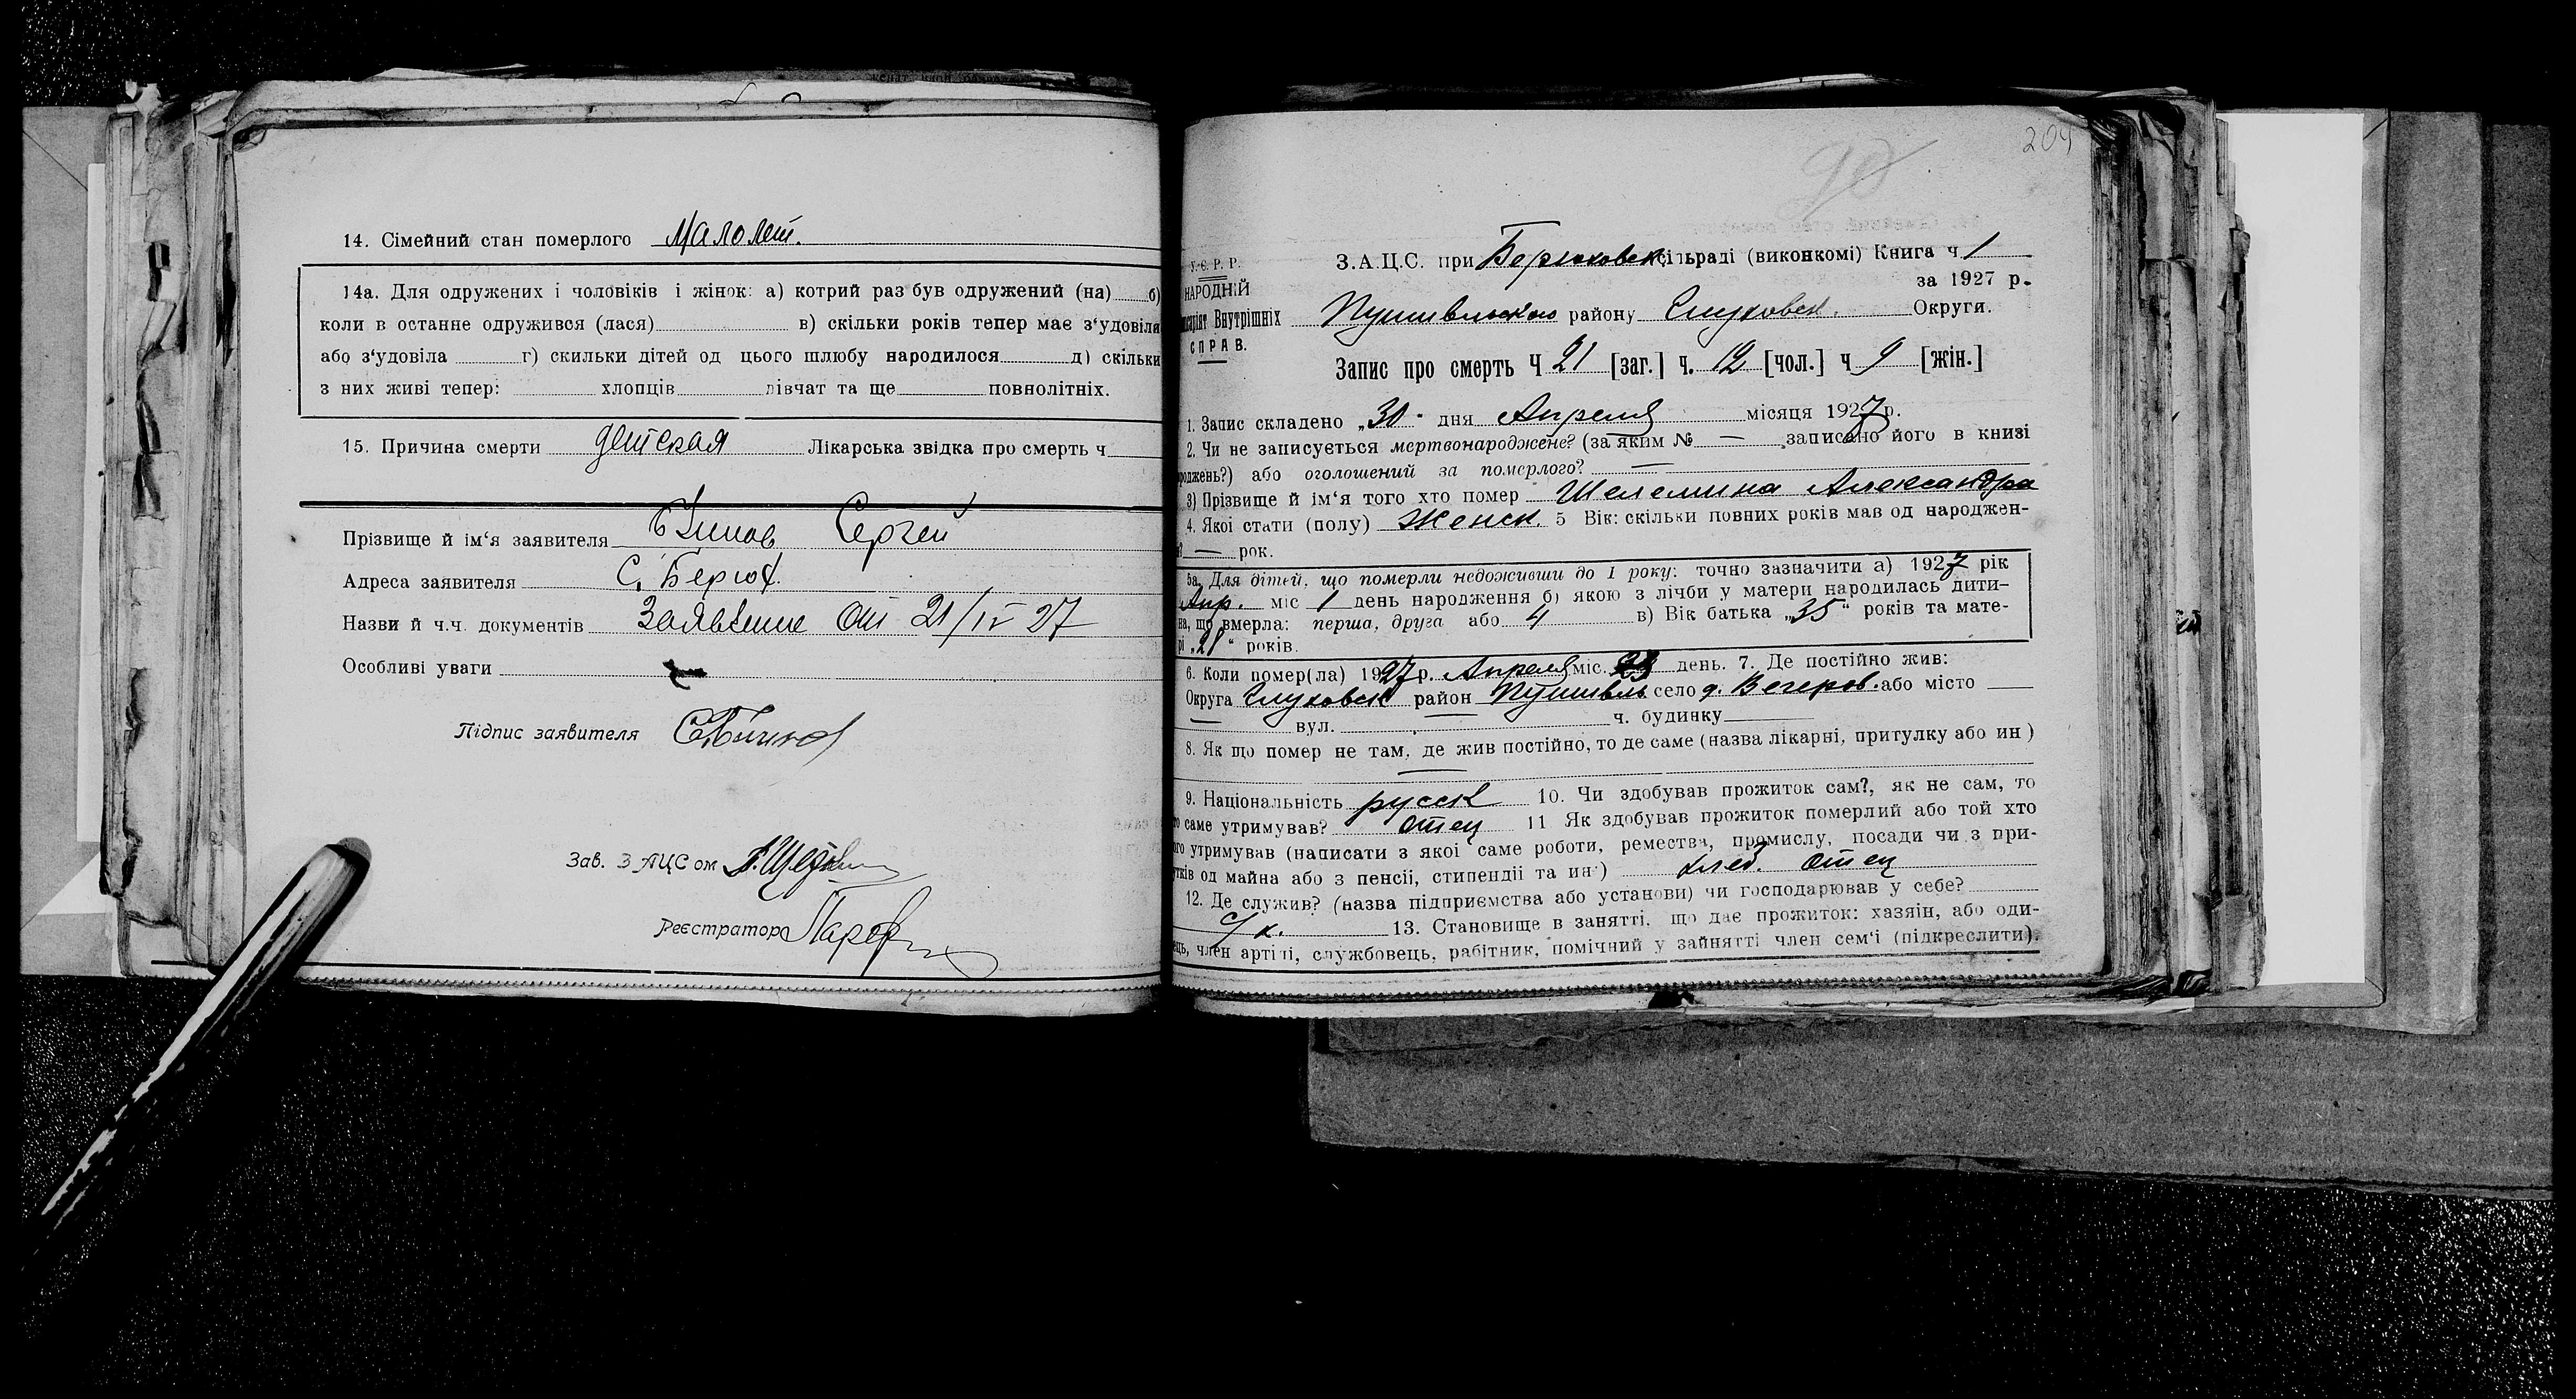 14. Сімейний стан померлого Малолет.
14а. Для одружених і чоловіків і жінок: а) котрий раз був одружений (на) б)
коли в останнє одружився (лася) в) скільки років тепер має з‘удовіла
або з‘удовіла г) скильки дітей од цього шлюбу народилося д) скільки
з них живі тепер: хлопців дівчат та ще повнолітніх.
15. Причина смерти детская Лікарська звідка про смерть ч
Прізвище й ім‘я заявителя Сергей
Адреса заявителя С. Берюх.
Назви й ч.ч. документів Заявление от 21/IV 27
Особливі уваги
Підпис заявителя
Зав. ЗАЦСом
Реєстратор
204
У.С.Р.Р.
НАРОДНІЙ
Внутрішніх
СПРАВ.
З.А.Ц.С. при Берюховск сільраді (виконкомі) Книга ч 1
за 1927 р.
Путивльского району Глуховск. Округи.
Запис про смерть Ч 21 [заг.] ч. 12 [чол.] ч 9 [жін.]
1. Запис складено „30" дня Апреля місяця 1927 р.
2. Чи не записується мертвонароджене? (за яким № — записано його в книзі
роджень?) або оголошений за померлого? —
3) Прізвище й ім‘я того хто помер Шелемина Александра
4. Якої стати (полу) Женск. 5 Вік: скільки повних років мав од народжен-
— рок.
5а. Для дітей, що померли недоживши до 1 року: точно зазначити а) 1927 рік
Апр. міс 1 день народження б) якою з лічби у матери народилась дити-
на, що вмерла: перша, друга або 4 в) Вік батька „35" років та мате-
рі „28" років.
6. Коли помер(ла) 1927 р. Апреля міс. 23 день. 7. Де постійно жив:
Округа Глуховск район Путивль село д. Вегеров. або місто —
— вул. — ч. будинку
8. Як що помер не там, де жив постійно, то де саме (назва лікарні, притулку або ин)
—
9. Національність русск 10. Чи здобував прожиток сам?, як не сам, то
то саме утримував? отец 11 Як здобував прожиток померлий або той хто
ого утримував (написати з якої саме роботи, ремества, промислу, посади чи з при-
утків од майна або з пенсії, стипендії та ин) хлеб. отец
12. Де служив? (назва підприємства або установи) чи господарював у себе?
с/х. 13. Становище в занятті, що дає прожиток: хазяін, або оди-
ець, член артілі, службовець, рабітник, помічний у зайнятті член сем‘і (підкреслити).